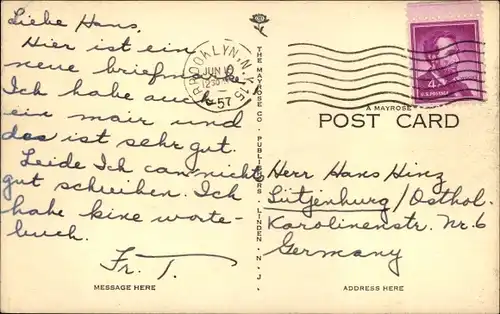 Liebe Hans,
Hier ist ein
neue briefmarke.
Ich habe auch
ein mair und
das ist sehr gut.
Leide Ich can nicht
gut schreiben. Ich
habe kine worte-
buch.
Fr. T.
MESSAGE HERE
THE MAYROSE CO. PUBLISHERS. LINDEN. N. J.
BROOKLYN, N.Y. 15
JUN
1957
4¢
U.S. POSTAGE
A MAYROSE
POST CARD
Herr Hans Hinz
Lütjenburg/Osthol.
Karolinenstr. Nr. 6
Germany
ADDRESS HERE